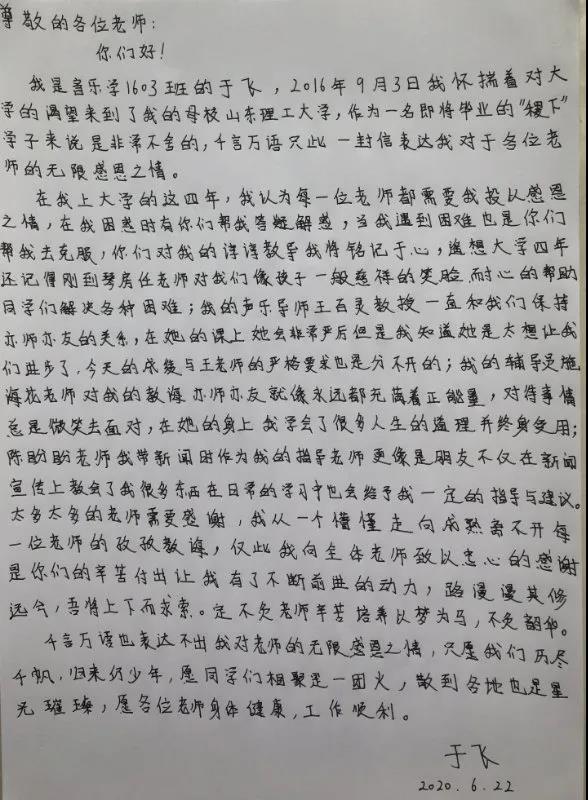 尊敬的各位老师：
你们好！
我是音乐学1603班的于飞，2016年9月3日我怀揣着对大
学的渴望来到了我的母校山东理工大学，作为一名即将毕业的“稷下”
学子来说是非常不舍的，千言万语只此一封信表达我对于各位老
师的无限感恩之情。
在我上大学的这四年，我认为每一位老师都需要我投以感恩
之情，在我困惑时有你们帮我答疑解惑，当我遇到困难也是你们
帮我去克服，你们对我的谆谆教导我将铭记于心，遥想大学四年
还记得刚到琴房任老师对我们像孩子一般慈祥的笑脸耐心的帮助
同学们解决各种困难；我的声乐导师王百灵教授一直和我们保持
亦师亦友的关系，在她的课上她会非常严厉但是我知道她是太想让我
们进步了，今天的成绩与王老师的严格要求也是分不开的；我的辅导员施
海花老师对我的教诲亦师亦友就像永远都充满着正能量，对待事情
总是微笑去面对，在她的身上我学会了很多人生的道理并终身受用；
陈盼盼老师我带新闻时作为我的指导老师更像是朋友不仅在新闻
宣传上教会了我很多东西在日常的学习中也会给予我一定的指导与建议。
太多太多的老师需要感谢，我从一个懵懂走向成熟离不开每
一位老师的孜孜教诲，仅此我向全体老师致以忠心的感谢
是你们的辛苦付出让我有了不断前进的动力，路漫漫其修
远兮，吾将上下而求索。定不负老师辛苦培养以梦为马，不负韶华。
千言万语也表达不出我对老师的无限感恩之情，只愿我们历尽
千帆，归来仍少年，愿同学们相聚是一团火，散到各地也是星
光璀璨，愿各位老师身体健康，工作顺利。
于飞
2020.6.22